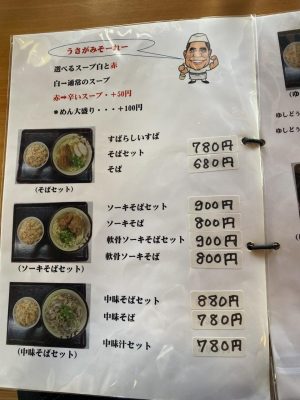 うさがみそーれー
選べるスープ白と赤
白ー通常のスープ
赤➡辛いスープ・+50円
*めん大盛り・・・+100円
すばらしいすば
そばセット 780円
そば 680円
(そばセット)
ソーキそばセット 900円
ソーキそば 800円
軟骨ソーキそばセット 900円
軟骨ソーキそば 800円
(ソーキそばセット)
中味そばセット 880円
中味そば 780円
中味汁セット 780円
(中味そばセット)
ゆしどう